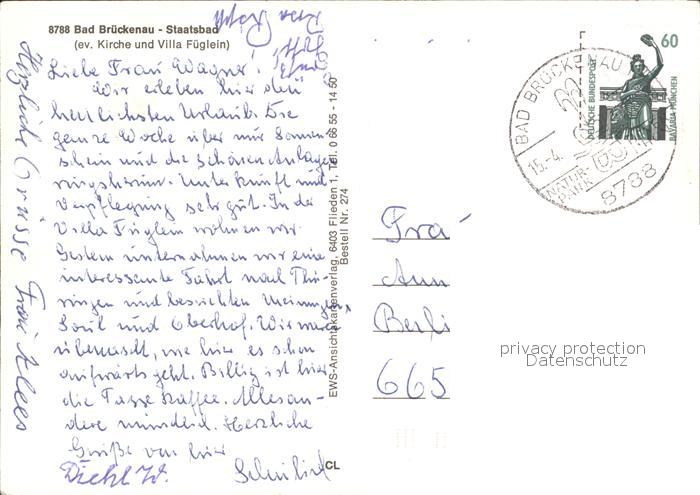 8788 Bad Brückenau - Staatsbad
(ev. Kirche und Villa Füglein)
Liebe Frau Wagner!
Wir erleben hier den
herrlichsten Urlaub. Die
ganze Woche über nur Sonnen-
schein und die schönen Anlagen
ringsherum. Unterkunft und
Verpflegung sehr gut. In der
Villa Füglein wohnen wir.
Gestern unternahmen wir eine
interessante Fahrt nach Thü-
ringen und besichten Meiningen,
Suhl und Oberhof. Wir waren
überrascht, wie hier es schon
aufwärts geht. Billig ist hier
die Tasse Kaffee. Alles an-
dere mindest. Herzliche
Grüße von hier
Herzliche Grüsse
EWS-Ansichtskartenverlag, 6403 Flieden 1, Tel. 0 66 55 - 14 50
Bestell Nr. 274
CL
60
DEUTSCHE BUNDESPOST
BAVARIA MÜNCHEN
BAD BRÜCKENAU
15.-4.
NATUR-
PARK
8788
Fra
Ann
Berli
665
privacy protection
Datenschutz